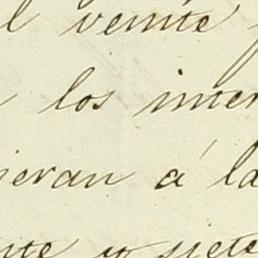 l veinte
los inter
ieran á la
nte y siete